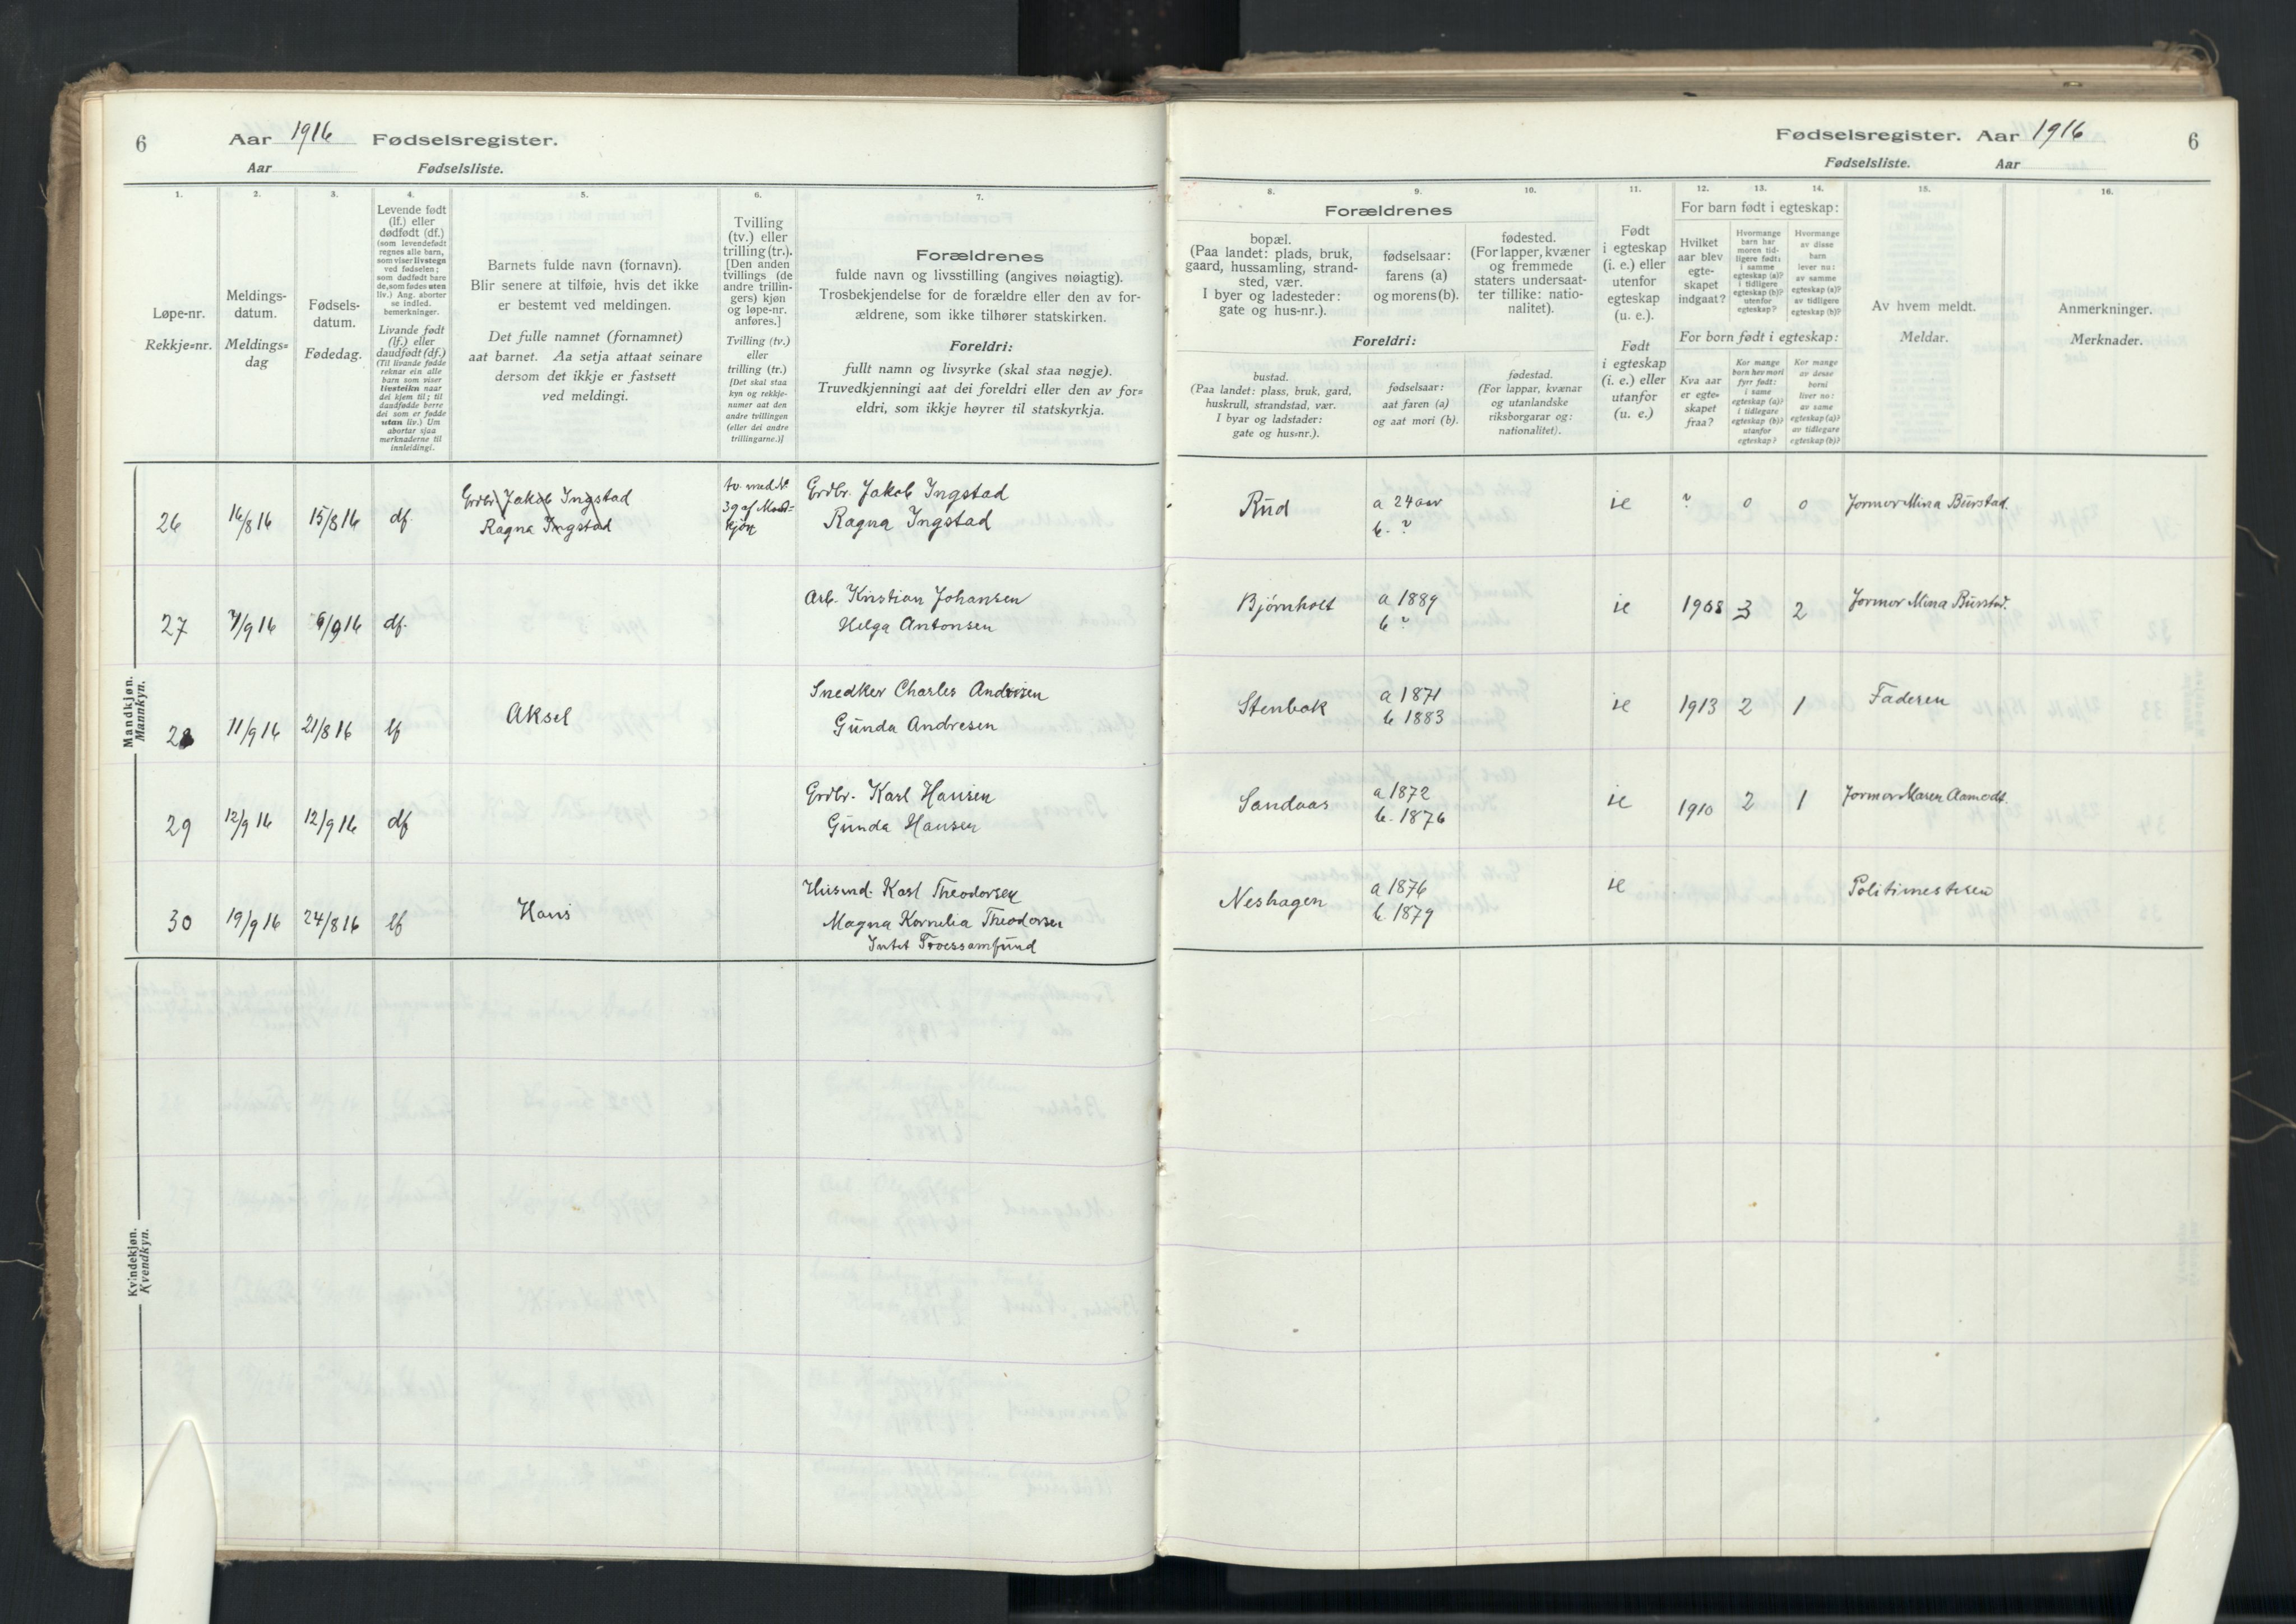 6
Aar 1916 Fødselsregister.
Aar Fødselsliste.
1.
2.
3.
4.
5.
6.
7.
Løpe-nr.
Rekkje=nr.
Meldings-
datum.
Meldings=
dag
Fødsels-
datum.
Fødedag.
Levende født
(lf.) eller
dødfødt (df.)
(som levendefødt
regnes alle barn,
som viser livstegn
ved fødselen;
som dødfødt bare
de, som fødes uten
liv.) Ang. aborter
se indled.
bemerkninger.
Livande født
(lf.) eller
daudfødt (df.)
(Til livande fødde
reknar ein alle
born som viser
livsteikn naar
dei kjem til; til
daudfødde berre
dei som er fødde
utan liv.) Um
abortar sjaa
merknaderne til
innleidingi.
Barnets fulde navn (fornavn).
Blir senere at tilføie, hvis det ikke
er bestemt ved meldingen.
Det fulle namnet (fornamnet)
aat barnet. Aa setja attaat seinare
dersom det ikkje er fastsett
ved meldingi.
Tvilling
(tv.) eller
trilling (tr.).
[Den anden
tvillings (de
andre trillin-
gers) kjøn
og løpe-nr.
anføres.]
Tvilling (tv.)
eller
trilling (tr.)
[Det skal staa
kyn og rekkje-
numer aat den
andre tvillingen
(eller dei andre
trillingarne.)]
Forældrenes
fulde navn og livsstilling (angives nøiagtig).
Trosbekjendelse for de forældre eller den av for-
ældrene, som ikke tilhører statskirken.
Foreldri:
fullt namn og livsyrke (skal staa nøgje).
Truvedkjenningi aat dei foreldri eller den av for=
eldri, som ikkje høyrer til statskyrkja.
Mandkjøn.
Mannkyn.
26 16/8 16 15/8 16 df.
Grdbr. Jakob Ingstad
Ragna Ingstad
tv. med Nr.
39 af Mand-
kjøn
Grdbr. Jakob Ingstad
Ragna Ingstad
27 7/9 16 6/9 16 df.
Arb. Kristian Johansen
Helga Antonsen
28 11/9 16 21/8 16 lf Aksel
Snedker Charles Andresen
Gunda Andresen
29 12/9 16 12/9 16 df
Grdbr. Karl Hansen
Gunda Hansen
30 19/9 16 24/8 16 lf Hans
Husmd. Karl Theodorsen
Magna Kornelia Theodorsen
Intet Troessamfund
Kvindekjøn.
Kvendkyn.
Fødselsregister. Aar 1916 6
Fødselsliste. Aar
8.
9.
10.
11.
12.
13.
14.
15.
16.
Forældrenes
bopæl.
(Paa landet: plads, bruk,
gaard, hussamling, strand-
sted, vær.
I byer og ladesteder:
gate og hus-nr.).
fødselsaar:
farens (a)
og morens (b).
fødested.
(For lapper, kvæner
og fremmede
staters undersaat-
ter tillike: natio-
nalitet).
Foreldri:
bustad.
(Paa landet: plass, bruk, gard,
huskrull, strandstad, vær.
I byar og ladstader:
gate og hus=nr.).
fødselsaar:
aat faren (a)
og aat mori (b).
fødestad.
(For lappar, kvænar
og utanlandske
riksborgarar og:
nationalitet).
Født
i egteskap
(i. e.) eller
utenfor
egteskap
(u. e.).
Født
i egteskap
(i. e.) eller
utanfor
(u. e.)
For barn født i egteskap:
Hvilket
aar blev
egte-
skapet
indgaat?
Hvormange
barn har
moren tid-
ligere født:
i samme
egteskap (a)?
i tidligere
egteskap (b)?
utenfor
egteskap?
Hvormange
av disse
barn
lever nu:
av samme
egteskap (a)?
av tidligere
egteskap (b)?
For born født i egteskap:
Kva aar
er egte=
skapet
fraa?
Kor mange
born hev mori
fyrr født:
i same
egteskap (a)?
i tidlegare
egteskap (b)?
utanfor
egteskap?
Kor mange
av desse
borni
liver no:
av same
egteskap (a)?
av tidlegare
egteskap (b)?
Av hvem meldt.
Meldar.
Anmerkninger.
Merknader.
Rud a 24 aar
b. ?
ie ? 0 0 Jormor Mina Burstad.
Bjørnholt a 1889
b ?
ie 1908 3 2 Jormor Mina Burstad.
Stenbak a 1871
b 1883
ie 1913 2 1 Faderen
Sandaas a 1872
b. 1876
ie 1910 2 1 Jormor Maren Aamodt.
Neshagen a 1876
b. 1879
ie Politimesteren